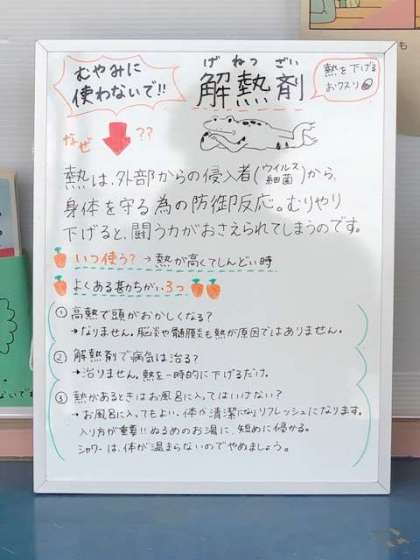 むやみに
使わないで!!
げねつざい
解熱剤
熱を下げる
おクスリ
なぜ ??
熱は、外部からの侵入者(ウイルス 細菌)から、
身体を守る為の防御反応。むりやり
下げると、闘う力がおさえられてしまうのです。
いつ使う? → 熱が高くてしんどい時
よくある勘ちがい3つ
① 高熱で頭がおかしくなる?
→ なりません。脳炎や髄膜炎も熱が原因ではありません。
② 解熱剤で病気は治る?
→ 治りません。熱を一時的に下げるだけ。
③ 熱があるときはお風呂に入ってはいけない?
→ お風呂に入ってもよい、体が清潔になりリフレッシュになります。
入り方が重要!! ぬるめのお湯に、短めに浸かる。
シャワーは、体が温まらないのでやめましょう。